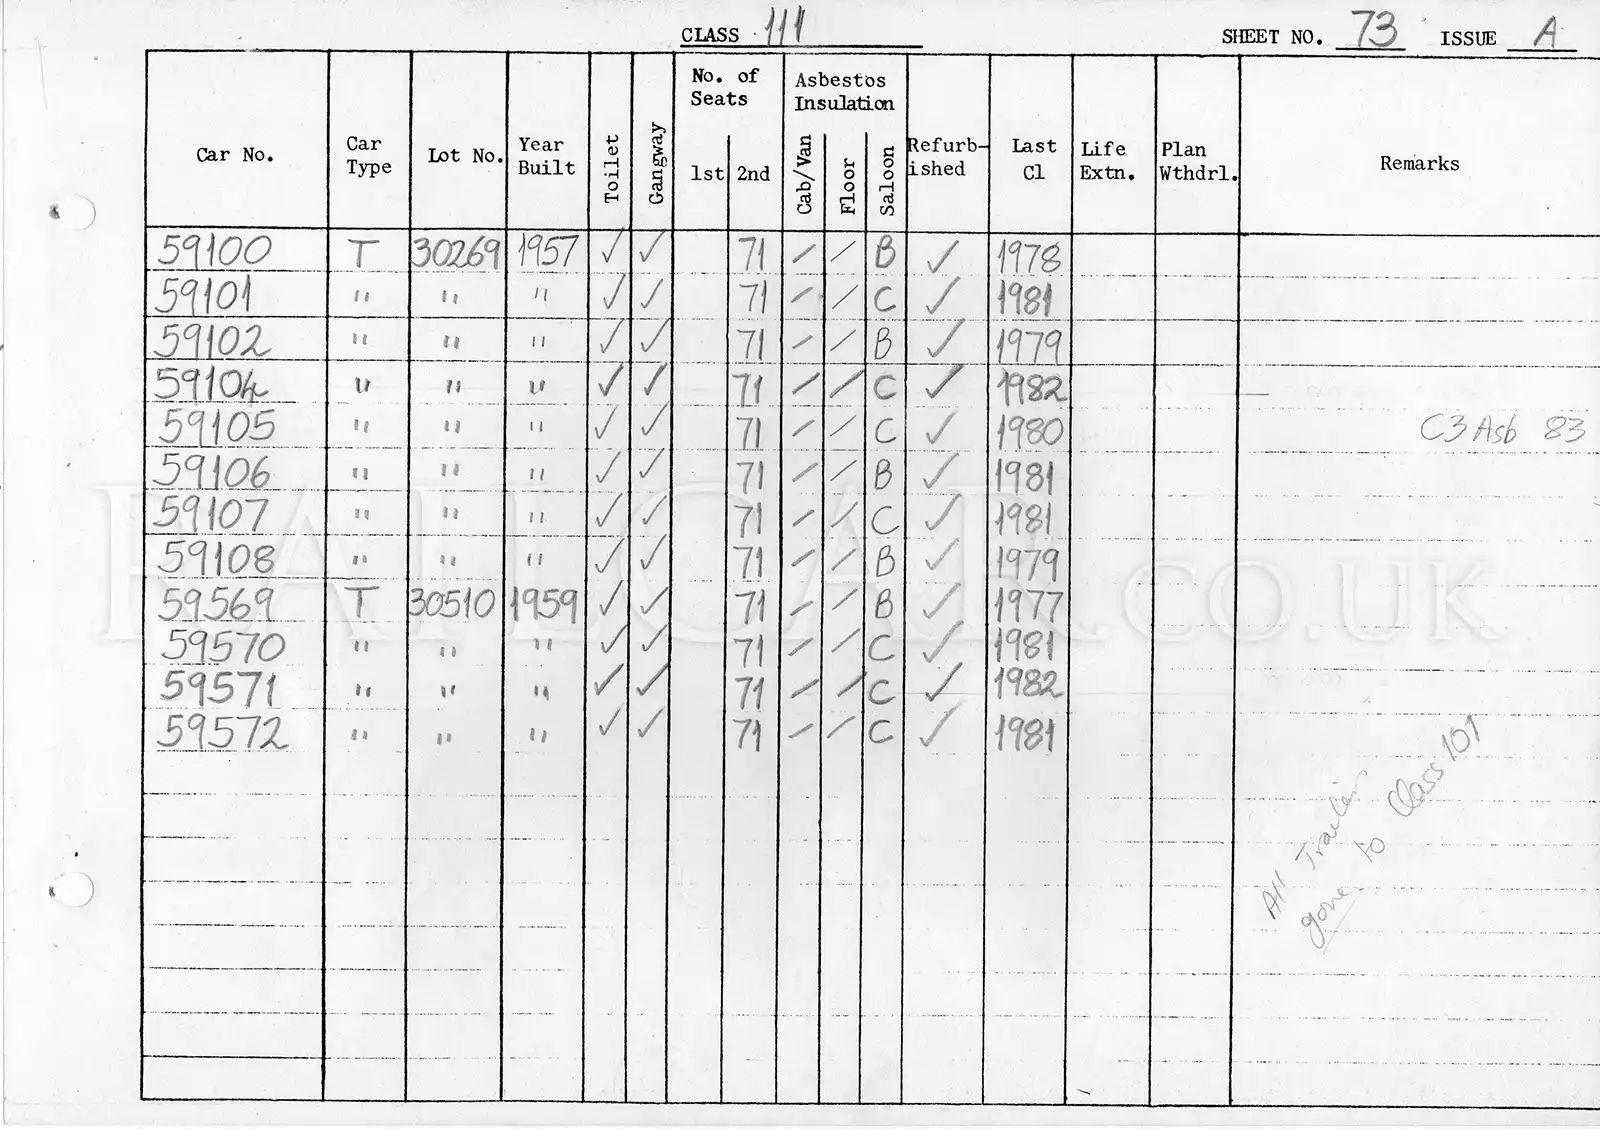 CLASS 111 SHEET NO. 73 ISSUE A
Car No. Car Type Lot No. Year Built Toilet Gangway No. of Seats 1st 2nd Asbestos Insulation Cab/Van Floor Saloon Refurb-ished Last Cl Life Extn. Plan Wthdrl. Remarks
59100 T 30269 1957 ✓ ✓ 71 / / B ✓ 1978
59101 " " " ✓ ✓ 71 / / C ✓ 1981
59102 " " " ✓ ✓ 71 / / B ✓ 1979
59104 " " " ✓ ✓ 71 / / C ✓ 1982
59105 " " " ✓ ✓ 71 / / C ✓ 1980 C3 Asb 83
59106 " " " ✓ ✓ 71 / / B ✓ 1981
59107 " " " ✓ ✓ 71 / / C ✓ 1981
59108 " " " ✓ ✓ 71 / / B ✓ 1979
59569 T 30510 1959 ✓ ✓ 71 / / B ✓ 1977
59570 " " " ✓ ✓ 71 / / C ✓ 1981
59571 " " " ✓ ✓ 71 / / C ✓ 1982
59572 " " " ✓ ✓ 71 / / C ✓ 1981
All Trailers
gone to Class 101
RAILCAR.CO.UK